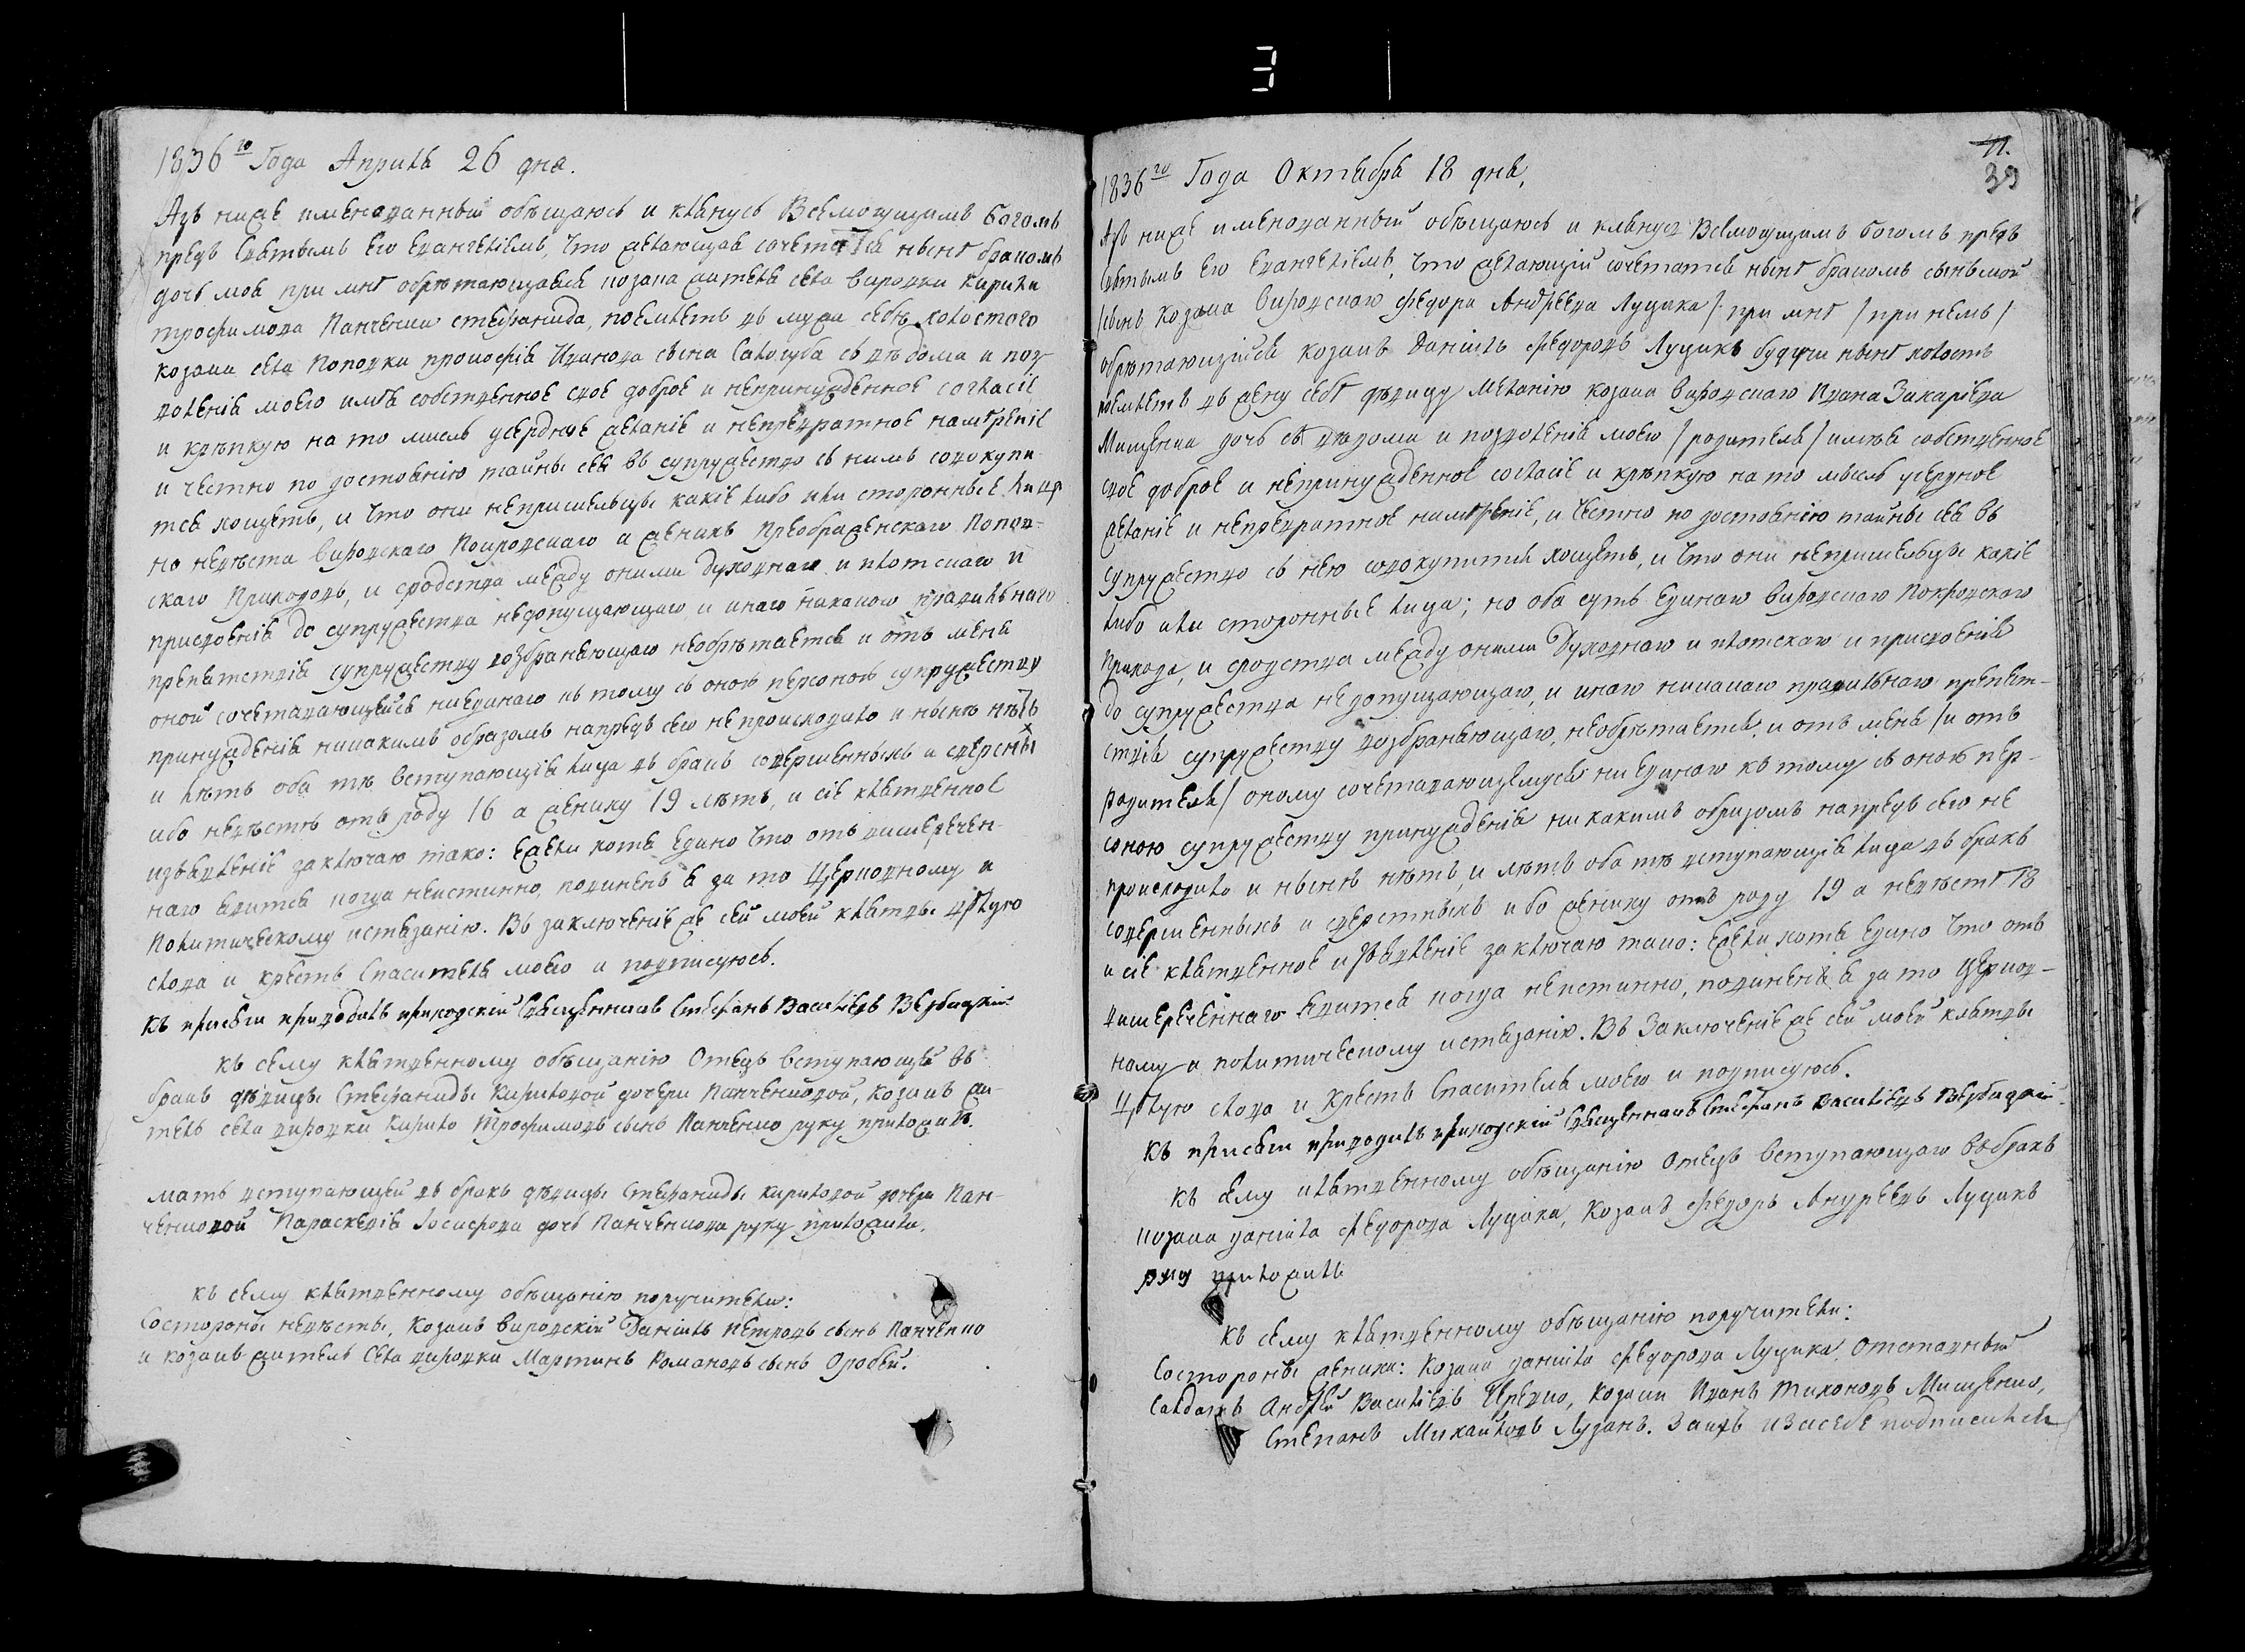 1836го Года Апреля 26 дня.
Азъ ниже именованный обѣщаюсь и клянусь Всемогущимъ Богомъ
предъ Святымъ Его Евангеліемъ, что желающая сочетатся нынѣ бракомъ
дочь моя при мнѣ обрѣтающаяся козака жителя села Вировки Кирила
Трофимова Панченки Стефанида, поемлетъ въ мужа себѣ холостого
козака села Поповки Прокофія Иванова сына Сологуба съ вѣдома и поз-
воленія моего имѣя собственное свое доброе и непринужденное согласіе
и крѣпкую на то мысль усердное желаніе и непревратное намѣреніе
и честно по достоянію тайны сея въ супружество съ нимъ совокупи-
тся хощетъ, и что они непришельцы какіе либо или сторонные лица
но невѣста Вировскаго Покровскаго а женихъ Преображенскаго Попов-
скаго Приходовъ, и сродства между оними духовнаго и плотскаго и
присвоенія до супружества недопущающаго и инаго никакого правильнаго
препятствія супружеству возбраняющаго необрѣтается и отъ меня
оной сочетавающейся ниединаго къ тому съ оною персоною супружеству
принужденія никакимъ образомъ напредъ сего не происходило и нынѣ нѣтъ
и лѣтъ оба тѣ вступающія лица въ бракъ совершенныхъ и сверсны
ибо невѣстѣ отъ роду 16 а жениху 19 лѣтъ, и сіе клятвенное
извявленіе заключаю тако: Ежели хотя едино что отъ вишеречен-
наго явится когда неистинно, повиненъ я за то Церковному и
Политическому истязанію. Въ заключеніе же сей моей клятвы цѣлую
слова и крестъ Спасителя моего и подписуюсь.
Къ присяги приводилъ приходскій Священникъ Стефанъ Василіевъ Вербицкій
Къ сему клятвенному обѣщанію Отецъ вступающей въ
бракъ дѣвицы Стефаниды Кириловой дочери Панченковой, козакъ жи-
тель села Вировки Кирило Трофимовъ сынъ Панченко руку приложилъ.
мать вступающей въ бракъ дѣвицы Стефаниды Кириловой дочери Пан-
ченковой Параскевія Іосифова дочь Панченкова руку приложила.
Къ сему клятвенному обѣщанію поручители:
Состороны невѣсты, Козакъ Вировскій Даніилъ Петровъ сынъ Панченко
и козакъ житель села Вировки Мартинъ Романовъ сынъ Оробей.
11.
39
1836го Года Октября 18 дня,
Азъ ниже именованный обѣщаюсь и клянусь Всемогущимъ Богомъ предъ
Святымъ Его Евангеліемъ, что желающій сочетатся нынѣ бракомъ сынъ мой
/сынъ Козака Вировскаго Федора Андрѣева Луцика/ при мнѣ /при немъ/
обрѣтающійся козакъ Даніилъ Федоровъ Луцикъ будучи нынѣ холостъ
поемлетъ въ жену себѣ дѣвицу Меланію козака Вировскаго Ивана Захаріева
Мищенка дочь съ вѣдома и позволенія моего /родителя/ имѣя собственное
свое доброе и непринужденное согласіе и крѣпкую на то мысль усердное
желаніе и непревратное намѣреніе, и честно по достоянію тайны сея въ
супружество съ нею совокупитися хощетъ, и что они непришельцы какіе
либо или сторонные лица; но оба суть единаго Вировскаго Покровскаго
Прихода, и сродства между оними Духовнаго и плотскаго и присвоенія
до супружества недопущающаго, и инаго никакаго правильнаго препят-
ствія супружеству возбраняющаго, необрѣтается, и отъ меня /и отъ
родителя/ оному сочетавающемуся ни единаго къ тому съ оною пер-
соною супружеству принужденія никакимъ образомъ напредъ сего не
происходило и нынѣ нѣтъ, и лѣтъ оба тѣ вступающія лица въ бракъ
совершенныхъ и сверстныхъ ибо жениху отъ роду 19 а невѣстѣ 18
и сіе клятвенное извявленіе заключаю тако: Ежели хотя едино что отъ
вишереченнаго явится когда неистинно, повиненъ я за то Церков-
ному и политическому истязанію. Въ Заключеніе же сей моей клятвы
Цѣлую слова и Крестъ Спасителя моего и подписуюсь.
Къ присяги приводилъ приходскій Священникъ Стефанъ Василіевъ Вербицкій.
Къ сему клятвенному обѣщанію Отецъ вступающаго въ бракъ
козака Даніила Федорова Луцика, Козакъ Федоръ Андреевъ Луцикъ
руку приложилъ
Къ сему клятвенному обѣщанію поручители:
Состороны жениха: Козака Даніила Федорова Луцика, Отставный
Салдатъ Андрѣй Василіевъ, Козаки Иванъ Тихоновъ Мищенко,
Степанъ Михайловъ Лузанъ. Занихъ изасебе подписался